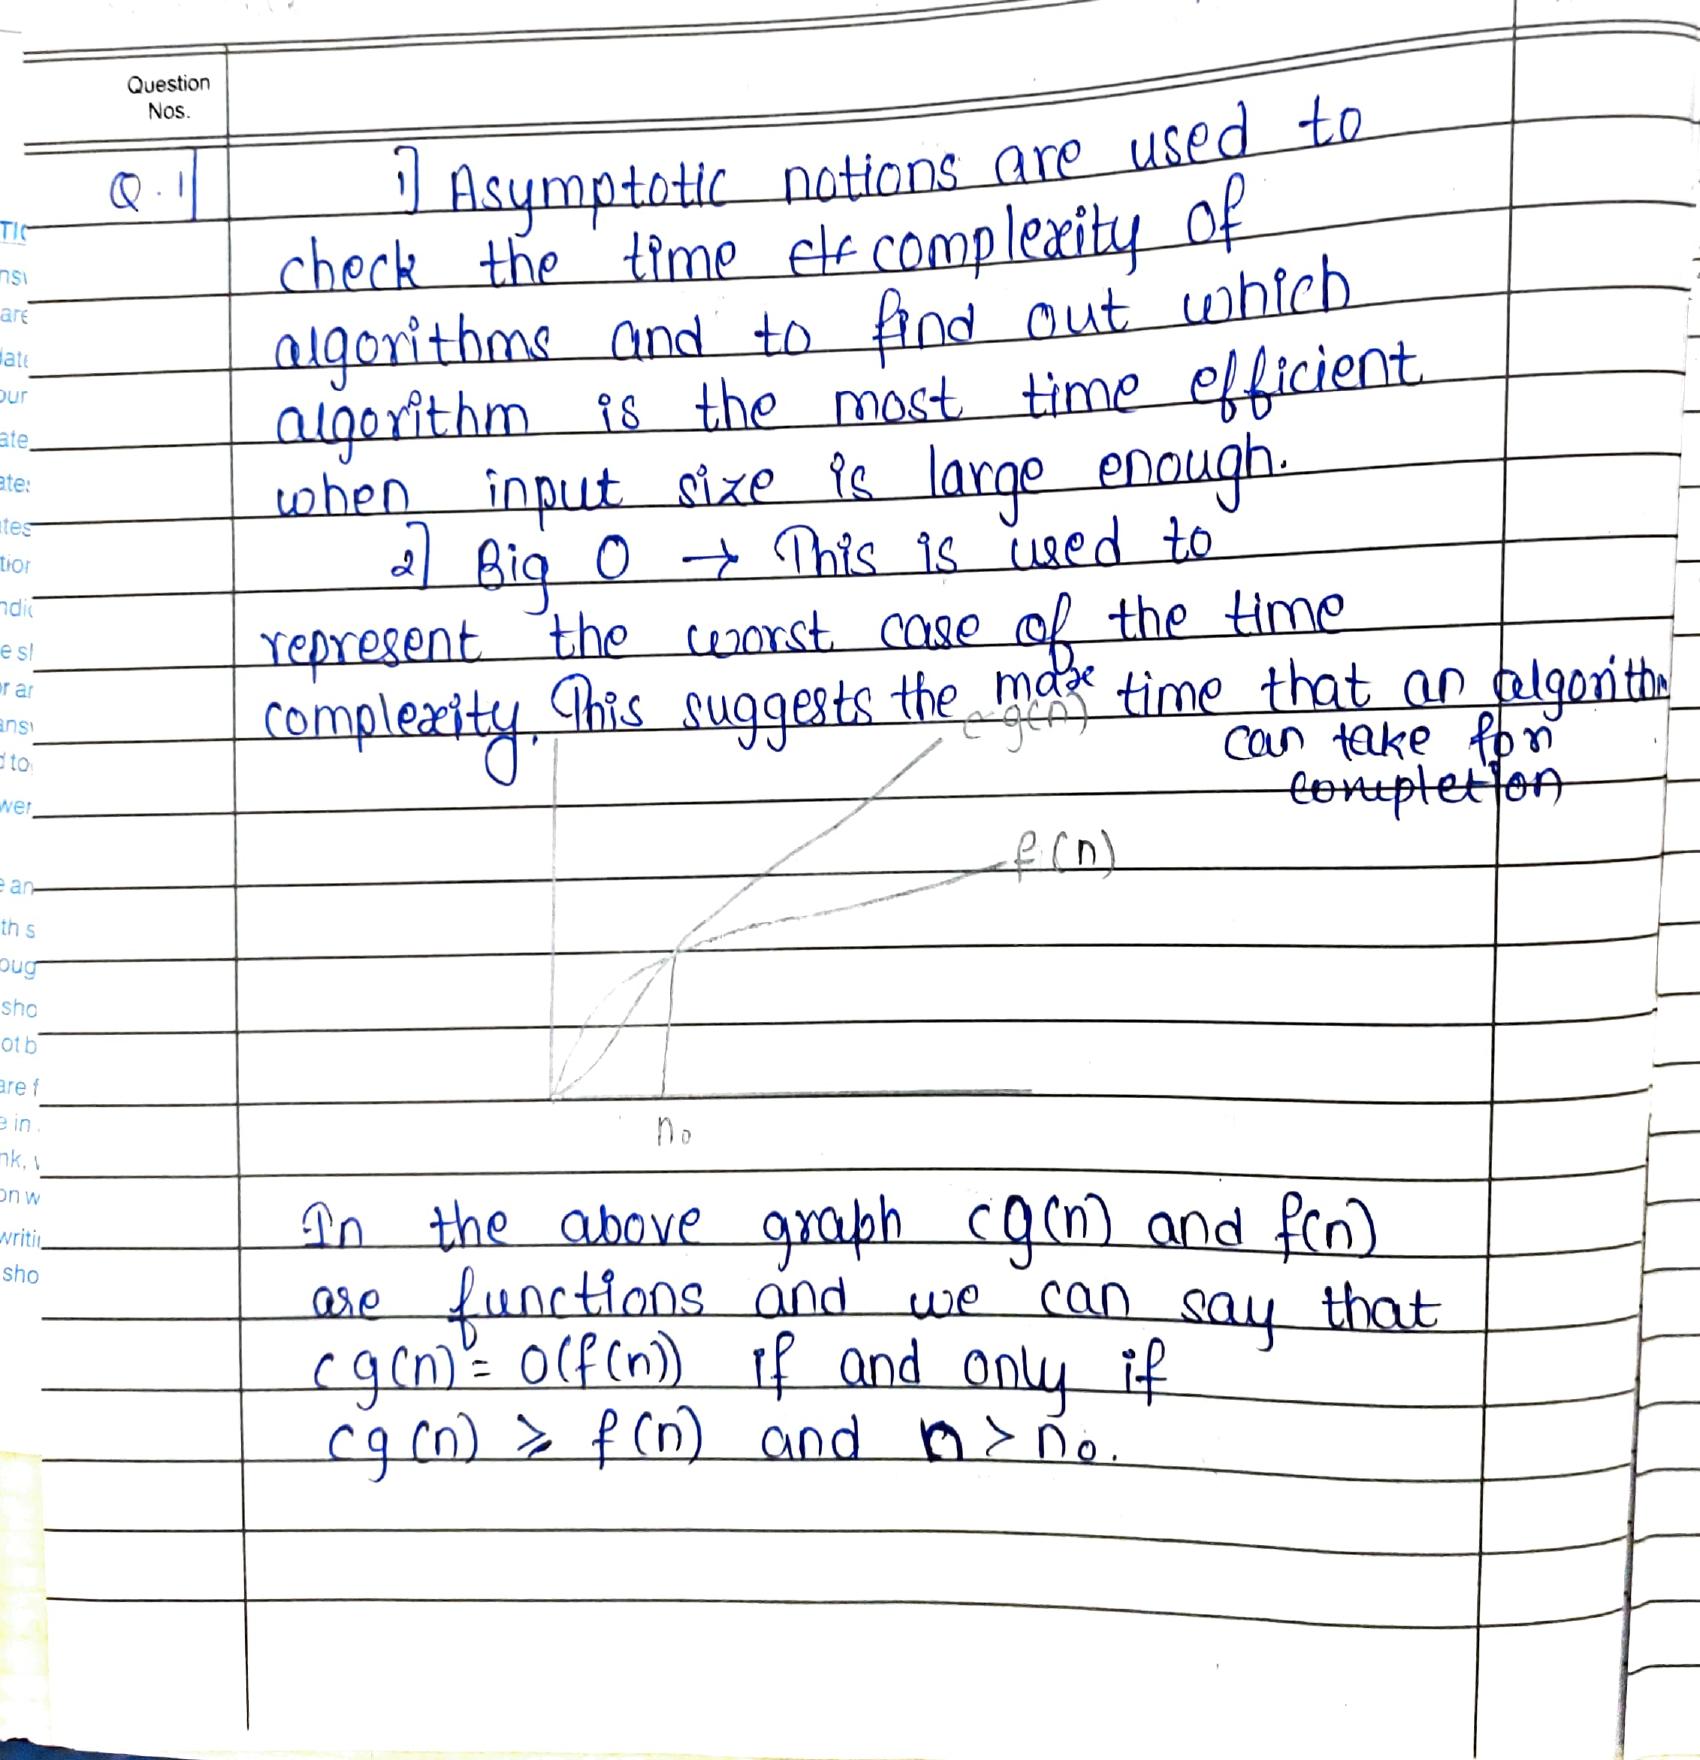 Question
Nos.
Q.1] 1] Asymptotic notions are used to
check the time complexity of
algorithms and to find out which
algorithm is the most time efficient
when input size is large enough.
2] Big O → This is used to
represent the worst case of the time
complexity. This suggests the max time that an algorithm
can take for
completion
c g(n)
f(n)
n₀
In the above graph cg(n) and f(n)
are functions and we can say that
cg(n) = O(f(n)) if and only if
cg(n) ⩾ f(n) and n > n₀.